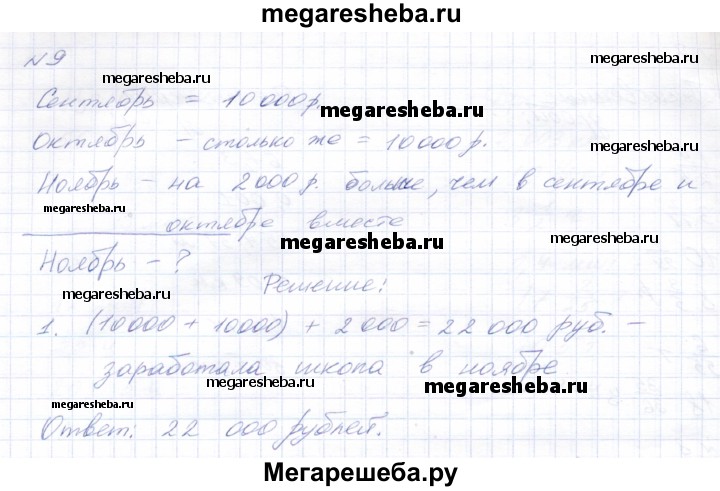 megaresheba.ru
№9
megaresheba.ru
megaresheba.ru
Сентябрь = 10000р.
megaresheba.ru
Октябрь – столько же = 10000р.
megaresheba.ru
Ноябрь – на 2000р. больше, чем в сентябре и
megaresheba.ru
октябре вместе
megaresheba.ru
megaresheba.ru
Ноябрь – ?
Решение:
megaresheba.ru
megaresheba.ru
1. (10000 + 10000) + 2000 = 22 000 руб. –
заработала школа в ноябре
megaresheba.ru
megaresheba.ru
megaresheba.ru
Ответ: 22 000 рублей.
Мегарешеба.ру